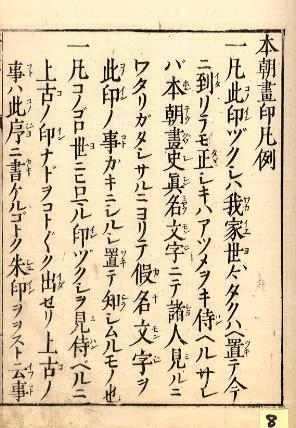 本朝畫印凡例
一凡此印ヅクシハ我家世々タクハヘ置テ今
ニ到リテモ正シキハアツメヲキ侍ヘルサレ
バ本朝畫史眞名文字ニテ諸人見ルニ
ワタリガタシサルニヨリテ假名文字ヲ
此印ノ事ガキニシルシ置テ知シムルモノ也
一凡コノゴロ世ニヒロマル印ヅクシヲ見侍ヘルニ
上古ノ印ナドヲコトゴトク出セリ上古ノ
事ハ此序ニ書ケルゴトク朱印ヲヲスト云事
8